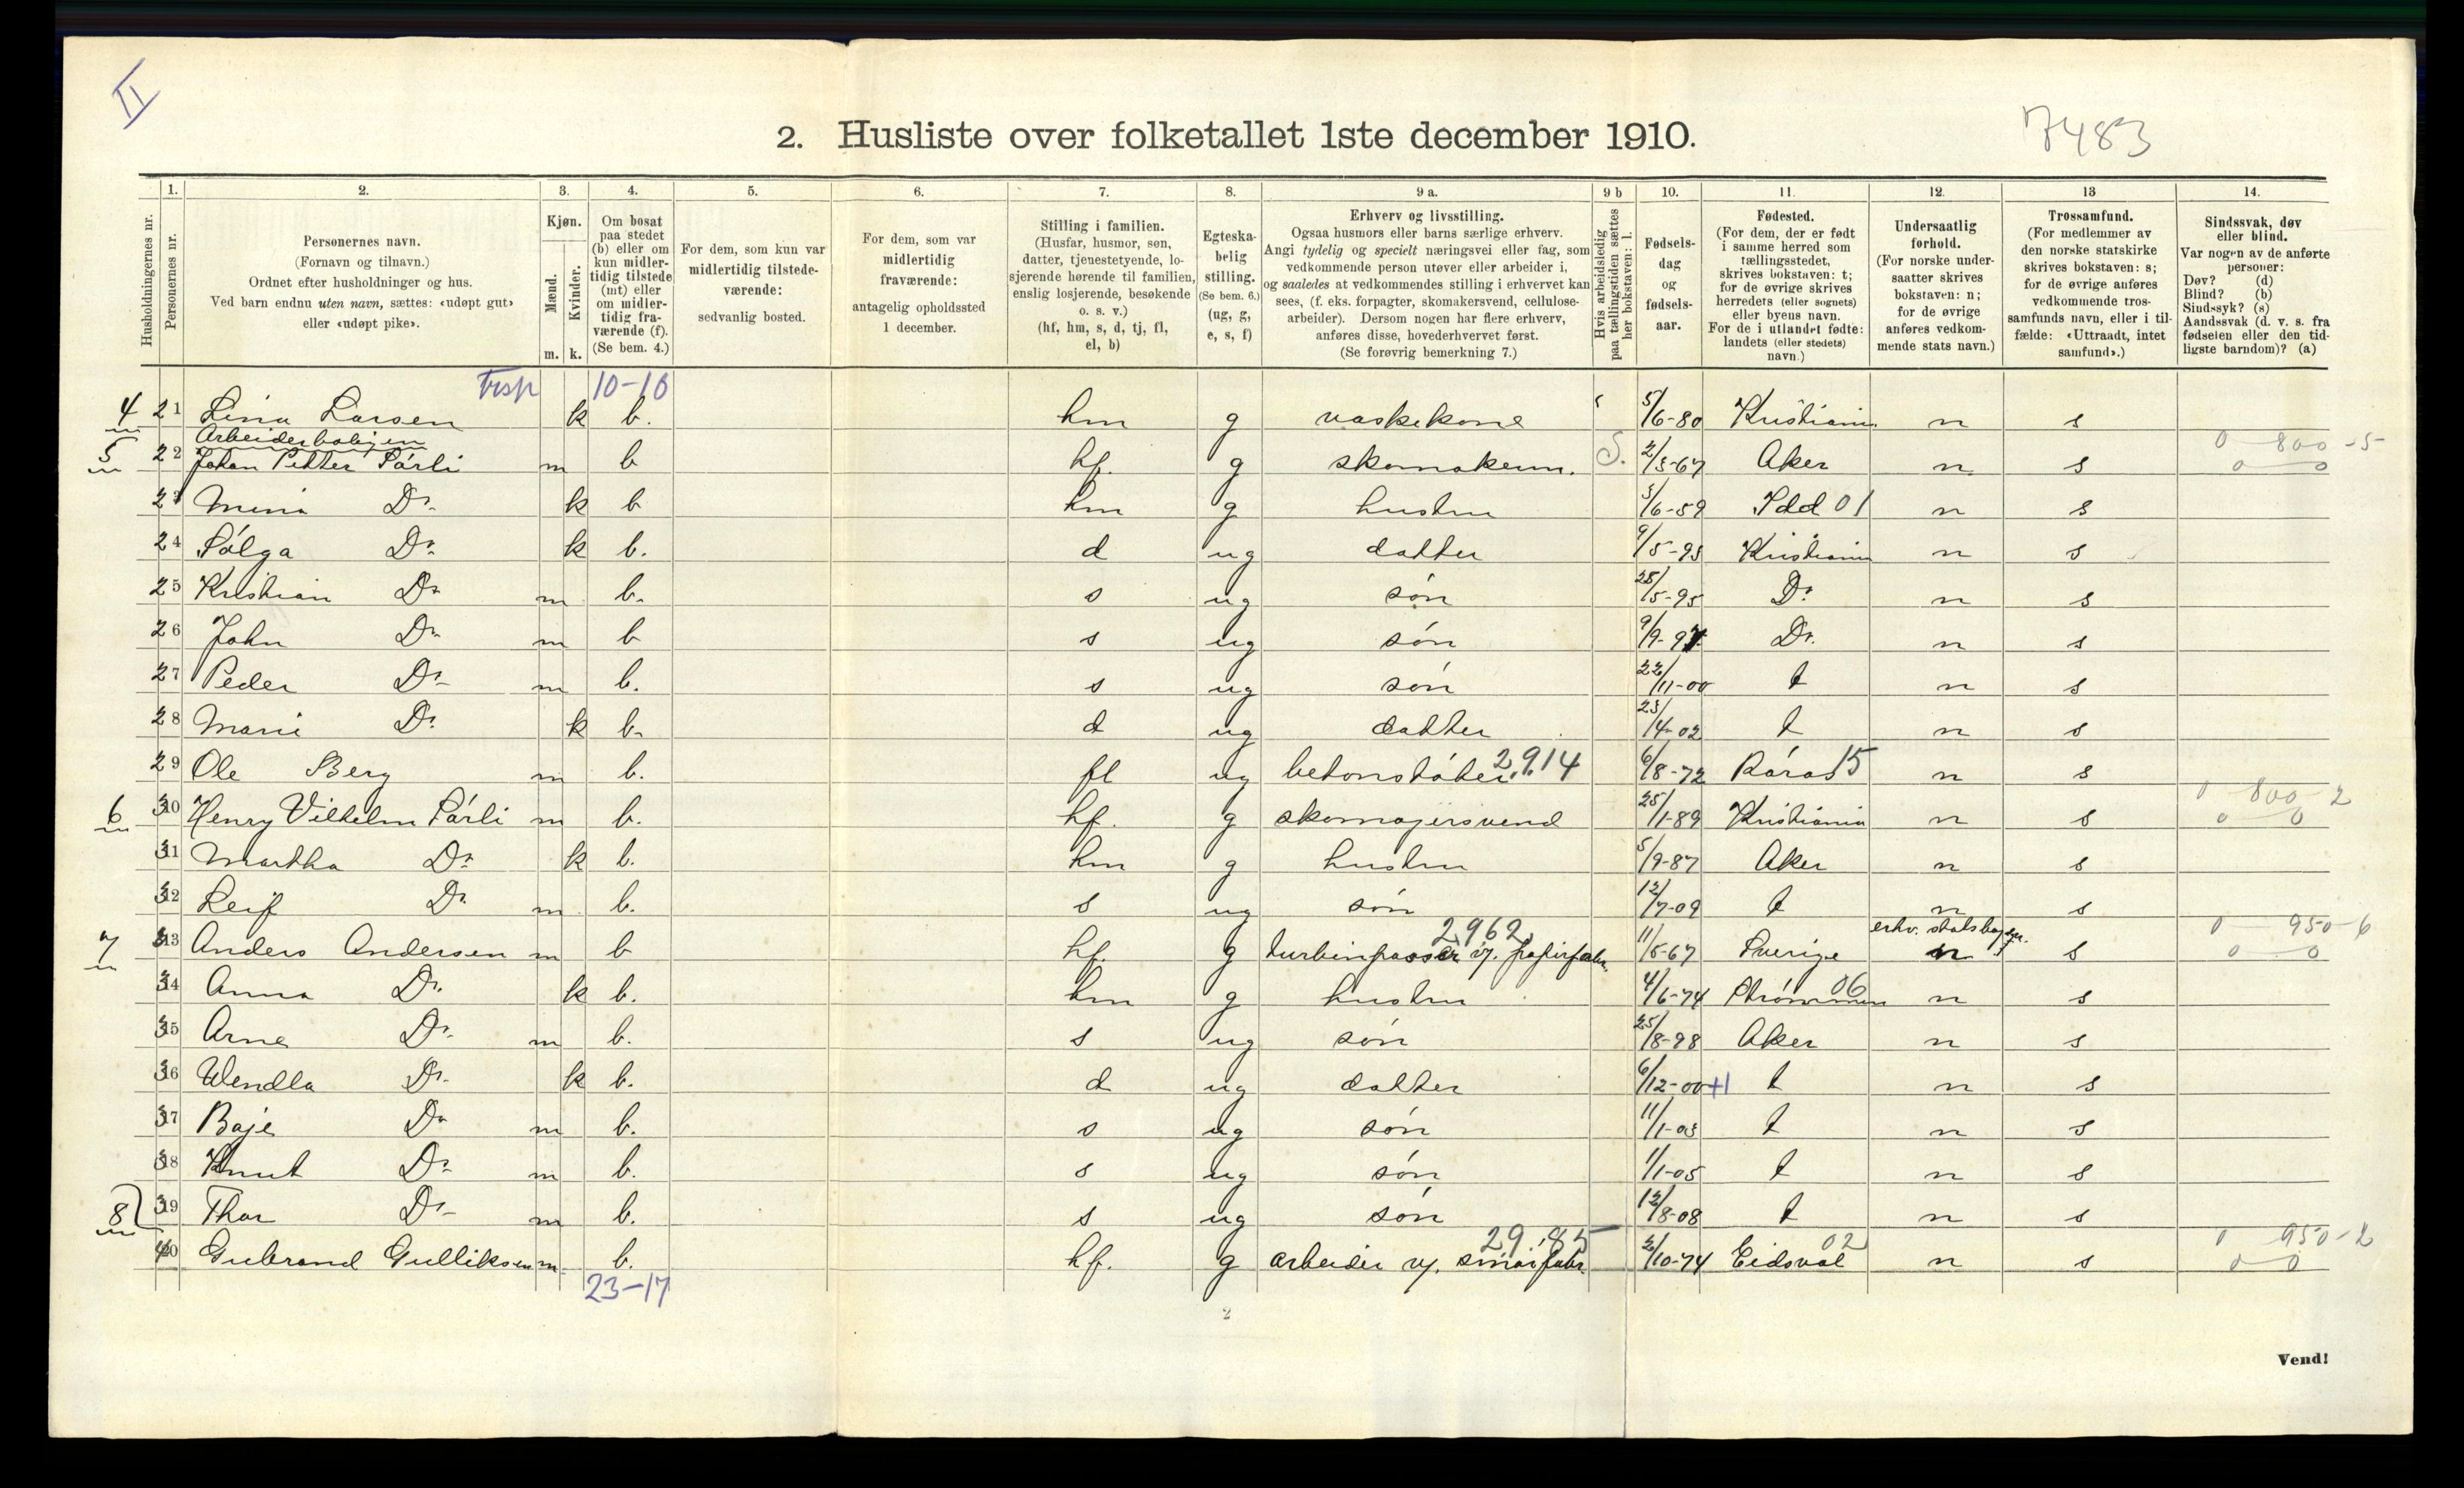 II
2. Husliste over folketallet 1ste december 1910.
7483
Husholdningernes nr.
1. Personernes nr.
2. Personernes navn. (Fornavn og tilnavn.) Ordnet efter husholdninger og hus. Ved barn endnu uten navn, sættes: «udøpt gut» eller «udøpt pike».
3. Kjøn. Mænd. m. Kvinder. k.
4. Om bosat paa stedet (b) eller om kun midler-tidig tilstede (mt) eller om midler-tidig fra-værende (f). (Se bem. 4.)
5. For dem, som kun var midlertidig tilstede-værende: sedvanlig bosted.
6. For dem, som var midlertidig fraværende: antagelig opholdssted 1 december.
7. Stilling i familien. (Husfar, husmor, søn, datter, tjenestetyende, lo-sjerende hørende til familien, enslig losjerende, besøkende o. s. v.) (hf, hm, s, d, tj, fl, el, b)
8. Egteska-belig stilling. (Se bem. 6.) (ug, g, e, s, f)
9 a. Erhverv og livsstilling. Ogsaa husmors eller barns særlige erhverv. Angi tydelig og specielt næringsvei eller fag, som vedkommende person utøver eller arbeider i, og saaledes at vedkommendes stilling i erhvervet kan sees, (f. eks. forpagter, skomakersvend, cellulose-arbeider). Dersom nogen har flere erhverv, anføres disse, hovederhvervet først. (Se forøvrig bemerkning 7.)
9 b Hvis arbeidsledig paa tællingstiden sættes her bokstaven: l.
10. Fødsels-dag og fødsels-aar.
11. Fødested. (For dem, der er født i samme herred som tællingsstedet, skrives bokstaven: t; for de øvrige skrives herredets (eller sognets) eller byens navn. For de i utlandet fødte: landets (eller stedets) navn.)
12. Undersaatlig forhold. (For norske under-saatter skrives bokstaven: n; for de øvrige anføres vedkom-mende stats navn.)
13 Trossamfund. (For medlemmer av den norske statskirke skrives bokstaven: s; for de øvrige anføres vedkommende tros-samfunds navn, eller i til-fælde: «Uttraadt, intet samfund».)
14. Sindssvak, døv eller blind. Var nogen av de anførte personer: Døv? (d) Blind? (b) Sindssyk? (s) Aandssvak (d. v. s. fra fødselen eller den tid-ligste barndom)? (a)
10-16
4 21 Lina Larsen k b. hm g vaskekone 5/6-80 Kristiania n s
Arbeiderboligen 0 800-5
5 22 Johan Petter Sørli m b hf. g skomakerm. S. 2/3-67 Aker n s 0 0
23 Mina Do k b hm g hustru 3/6-59 Idd 01 n s
24 Sólga Do k b. d ug datter 9/5-93 Kristiania n s
25 Kristian Do m b. s ug són 28/5-95 Do n s
26 John Do m b s ug són 9/9-97 Do n s
27 Peder Do m b. s ug són 22/11-00 t n s
28 Marie Do k b. d ug datter 23/4-02 t n s
29 Ole Berg m b. fl ug betonstóber 2.9.14 6/8-72 Róros 15 n s
0 800 2
6 30 Henry Vilhelm Sórli m b. hf. g skomagersvend 25/1-89 Kristiania n s 0 0
31 Martha Do k b. hm g hustru 5/9-87 Aker n s
32 Leif Do m b. s ug són 12/7-09 t n s
2962. erhv. statsborger. 0 950-6
7 33 Anders Andersen m b hf. g turbinpasser v. papirfabr. 11/5-67 Sverige n s 0 0
34 Anna Do k b. hm g hustru 4/6-74 Strómmen 06 n s
35 Arne Do m b. s ug són 25/8-98 Aker n s
36 Wendla Do k b. d ug datter 6/12-00 +1 t n s
37 Baje Do m b. s ug són 11/1-03 t n s
38 Knut Do m b. s ug són 1/1-05 t n s
39 Thor Do m b. s ug són 12/8-08 t n s
29.85 02 0 950-2
8 40 Gubrand Gulliksen m b. hf. g arbeider v. smórfabr. 2/10-74 Eidsvol n s 0 0
23-17
2
Vend!